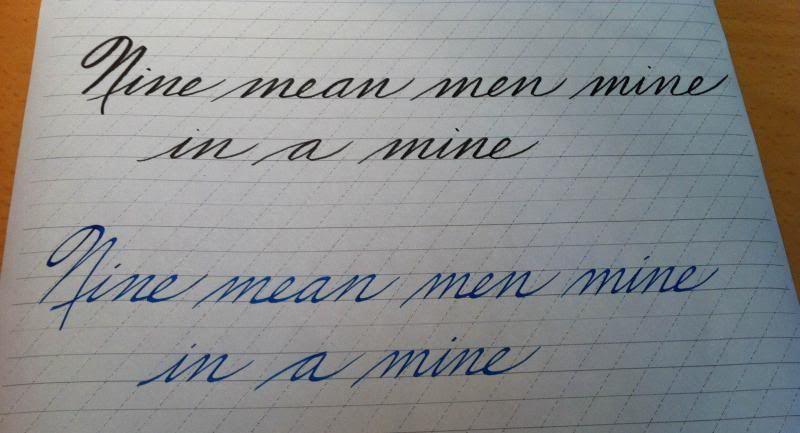 Nine mean men mine
in a mine
Nine mean men mine
in a mine